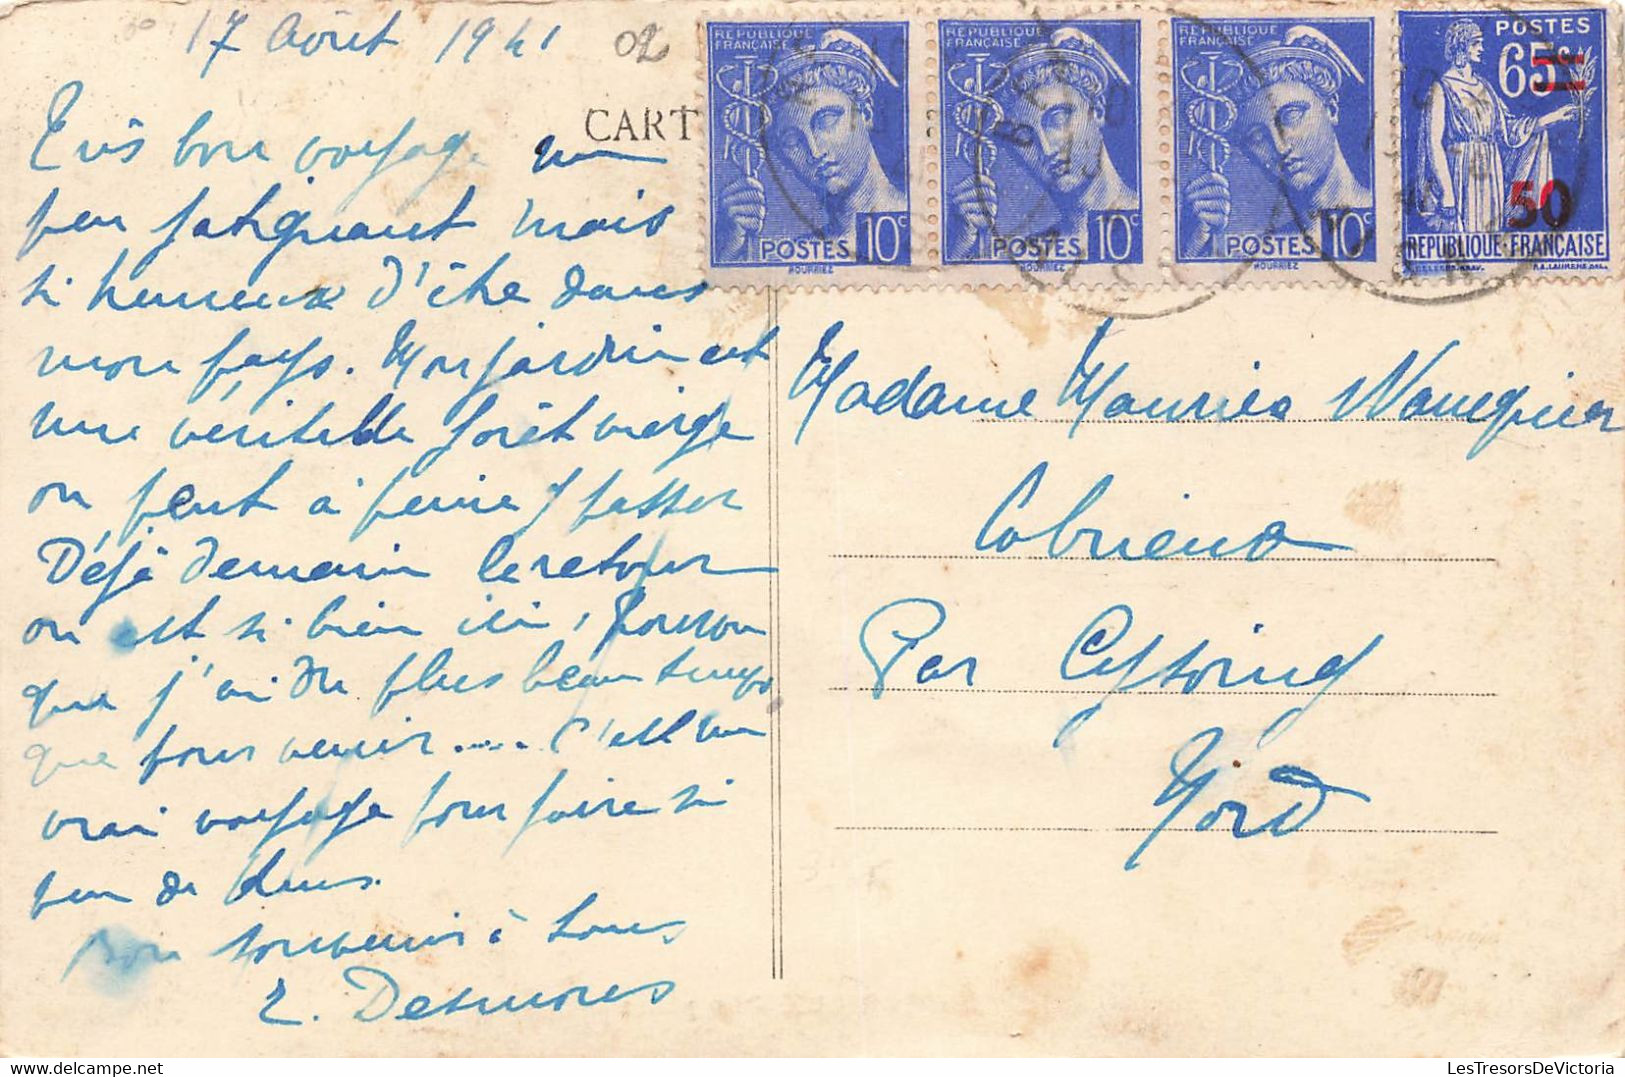 17 Août 1941
02
CART
Très bon voyage un
peu fatiguant mais
si heureux d'être dans
mon pays. Mon jardin est
une véritable forêt vierge
on peut à peine y passer
Déjà demain le retour
on est si bien ici,
que j'ai du plus beau temps
que pour venir.... C'est un
vrai voyage pour faire si
peu de
Bon souvenir à tous
E. Desmons
REPUBLIQUE FRANÇAISE
POSTES 10c
HOURRIEZ
REPUBLIQUE FRANÇAISE
POSTES 10c
HOURRIEZ
REPUBLIQUE FRANÇAISE
POSTES 10c
HOURRIEZ
POSTES
65c
50
REPUBLIQUE FRANÇAISE
Madame Maurice Wauquier
Cobrieux
Par Cysoing
Nord
LesTresorsDeVictoria
www.delcampe.net